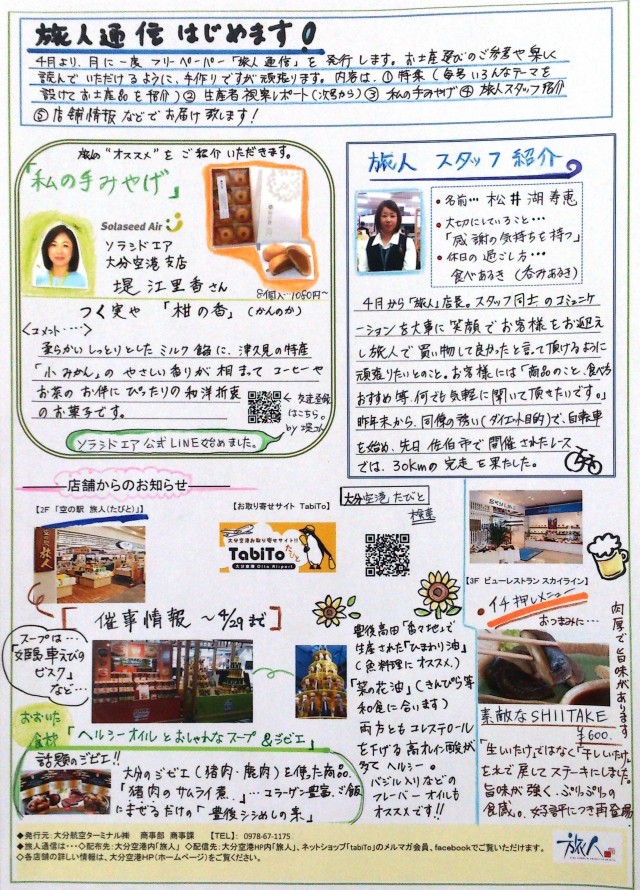 旅人通信はじめます!
4月より、月に一度 フリーペーパー「旅人通信」を発行します。お土産選びのご参考や楽しく
読んでいただけるように、手作りですが頑張ります。内容は、①特集(毎号いろんなテーマを
設けてお土産品を紹介)②生産者視察レポート(次号から)③私の手みやげ④旅人スタッフ紹介
⑤店舗情報などでお届け致します!
旅の"オススメ"をご紹介いただきます。
「私の手みやげ」
Solaseed Air
ソラシドエア
大分空港支店
堤 江里香さん
8個入 1080円~
つく実や 「柑の香」(かんのか)
<コメント‥‥>
柔らかいしっとりとしたミルク餡に、津久見の特産
「小みかん」のやさしい香りが相まってコーヒーや
お茶のお伴にぴったりの和洋折衷
のお菓子です。
友達登録
はこちら。
by 堤さん
ソラシドエア公式LINE始めました。
旅人 スタッフ紹介
・名前… 松井 湖寿恵
・大切にしていること…
「感謝の気持ちを持つ」
・休日の過ごし方…
食べあるき(呑みあるき)
4月から「旅人」店長。スタッフ同士のコミュニケ
ーションを大事に笑顔でお客様をお迎え
し旅人で買い物して良かったと言って頂けるように
頑張りたいとのこと。お客様には「商品のこと、食べ方
おすすめ等何でも気軽に聞いて頂きたいです。」
昨年末から、同僚の誘い(ダイエット目的)で、自転車
を始め、先日佐伯市で開催されたレース
では、30kmの完走を果たした。
店舗からのお知らせ
【2F 「空の駅 旅人(たびと)」】
旅人
【お取り寄せサイト TabiTo】
大分空港お取り寄せサイト!!
TabiTo たびと
大分空港 Oita Airport
大分空港たびと
検索
【3F ビューレストラン スカイライン】
[催事情報 ~4/29まで]
スープは…
「姫島車えびの
ビスク」
など…
おおいた
食材
「ヘルシーオイルとおしゃれなスープ&ジビエ」
話題のジビエ!!
大分のジビエ(猪肉・鹿肉)を使った商品。
「猪肉のサムライ煮」…コラーゲン豊富、ご飯
にまぜるだけの「豊後シシめしの素」
豊後高田「香々地」で
生産された「ひまわり油」
(魚料理にオススメ)
「菜の花油」(きんぴら等
和食に合います)
両方ともコレステロール
を下げる高オレイン酸が
多くてヘルシー。
バジル入りなどの
フレーバーオイルも
オススメです!!
・イチ押しメニュー
おつまみに…
肉厚で旨味があります
素敵なSHIITAKE
¥600.
「生しいたけ」ではなく「干ししいたけ」
をだし戻してステーキにしました。
旨味が強く、ぷりっぷりの
食感。好評につき再登場
◆発行元:大分航空ターミナル㈱ 商事部 商事課 【TEL】: 0978-67-1175
◆旅人通信は・・・◇配布先:大分空港内「旅人」 ◇配信先:大分空港HP内「旅人」、ネットショップ「tabiTo」のメルマガ会員、facebookでご覧いただけます。
◇各店舗の詳しい情報は、大分空港HP(ホームページ)をご覧ください。
旅人